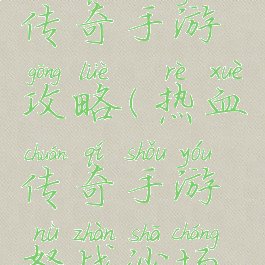 传奇手游
gōng lüè rè xuè
攻略(热血
chuán qí shǒu yóu
传奇手游
nù zhàn shā chǎng
怒战沙场